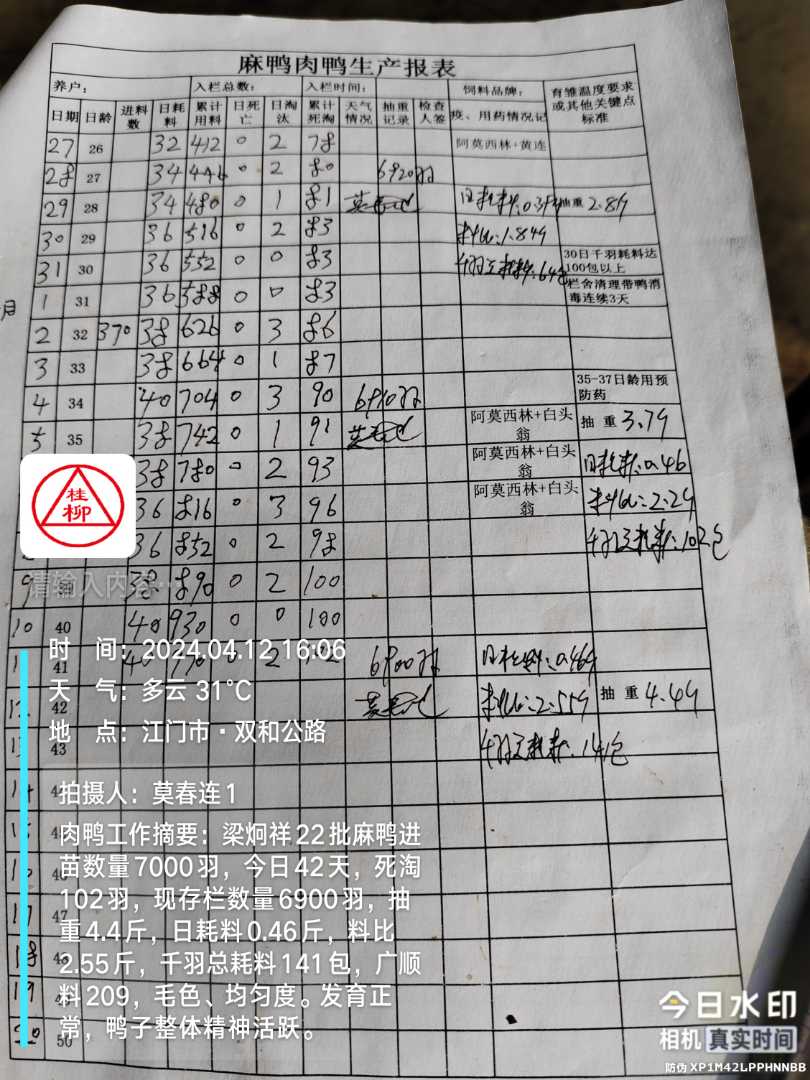 麻鸭肉鸭生产报表
养户： 入栏总数： 入栏时间： 饲料品牌： 育雏温度要求或其他关键点标准
日期 日龄 进料数 日耗料 累计用料 日死亡 日淘汰 累计死淘 天气情况 抽重记录 检查人签 疫、用药情况记
27 26 32 412 0 2 78 阿莫西林+黄连
28 27 34 446 0 2 80 6920羽
29 28 34 480 0 1 81 抽重 2.8斤
30 29 36 516 0 2 83 料比:1.84斤
31 30 36 552 0 0 83 30日千羽耗料达100包以上
月 1 31 36 588 0 0 83 栏舍清理带鸭消毒连续3天
2 32 370 38 626 0 3 86
3 33 38 664 0 1 87
4 34 40 704 0 3 90 6910羽 35-37日龄用预防药
5 35 38 742 0 1 91 阿莫西林+白头翁 抽重 3.7斤
38 780 0 2 93 阿莫西林+白头翁 日耗料:0.46
36 816 0 3 96 阿莫西林+白头翁 料比:2.2斤
36 852 0 2 98 千羽总耗料:102包
9 38 890 0 2 100
10 40 40 930 0 0 100
41 40 2 102 6900羽 日耗料:0.46斤
12 42 料比:2.55斤 抽重 4.4斤
13 43 千羽总耗料:141包
14
15
16
17 47
18
19
20 50
桂柳
请输入内容…
时 间：2024.04.12 16:06
天 气：多云 31℃
地 点：江门市·双和公路
拍摄人：莫春连1
肉鸭工作摘要：梁炯祥22批麻鸭进
苗数量7000羽，今日42天，死淘
102羽，现存栏数量6900羽，抽
重4.4斤，日耗料0.46斤，料比
2.55斤，千羽总耗料141包，广顺
料209，毛色、均匀度。发育正
常，鸭子整体精神活跃。
今日水印
相机 真实时间
防伪 XP1M42LPPHNNBB